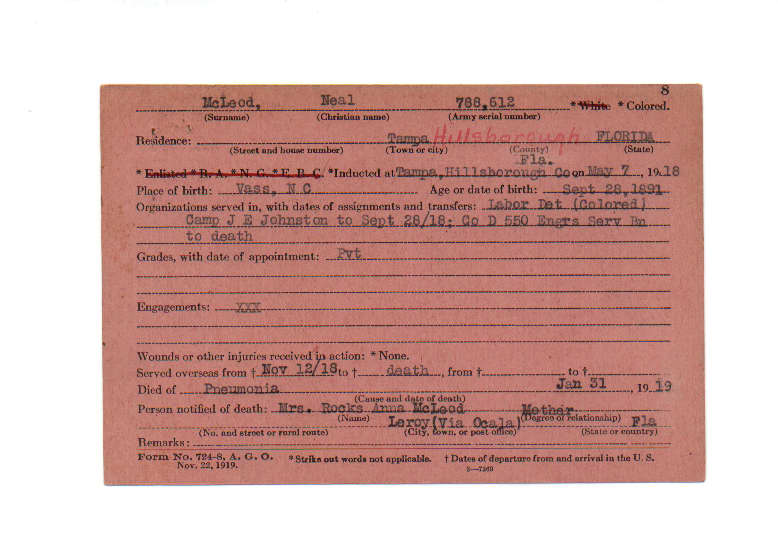 8
McLeod, Neal 788,612 * White * Colored.
(Surname) (Christian name) (Army serial number)
Residence: Tampa Hillsborough FLORIDA
(Street and house number) (Town or city) (County) (State)
Fla.
* Enlisted * R. A. * N. G. * E. R. C. * Inducted at Tampa, Hillsborough Co on May 7, 1918
Place of birth: Vass, N C Age or date of birth: Sept 28,1891
Organizations served in, with dates of assignments and transfers: Labor Det (Colored)
Camp J E Johnston to Sept 28/18; Co D 550 Engrs Serv Bn
to death
Grades, with date of appointment: Pvt
Engagements: XXX
Wounds or other injuries received in action: * None.
Served overseas from † Nov 12/18 to † death, from † to †
Died of Pneumonia Jan 31, 1919
(Cause and date of death)
Person notified of death: Mrs. Rocks Anna McLeod Mother
(Name) (Degree of relationship)
Leroy(Via Ocala) Fla
(No. and street or rural route) (City, town, or post office) (State or country)
Remarks:
Form No. 724-8, A. G. O. * Strike out words not applicable. † Dates of departure from and arrival in the U. S.
Nov. 22, 1919. 3—7369